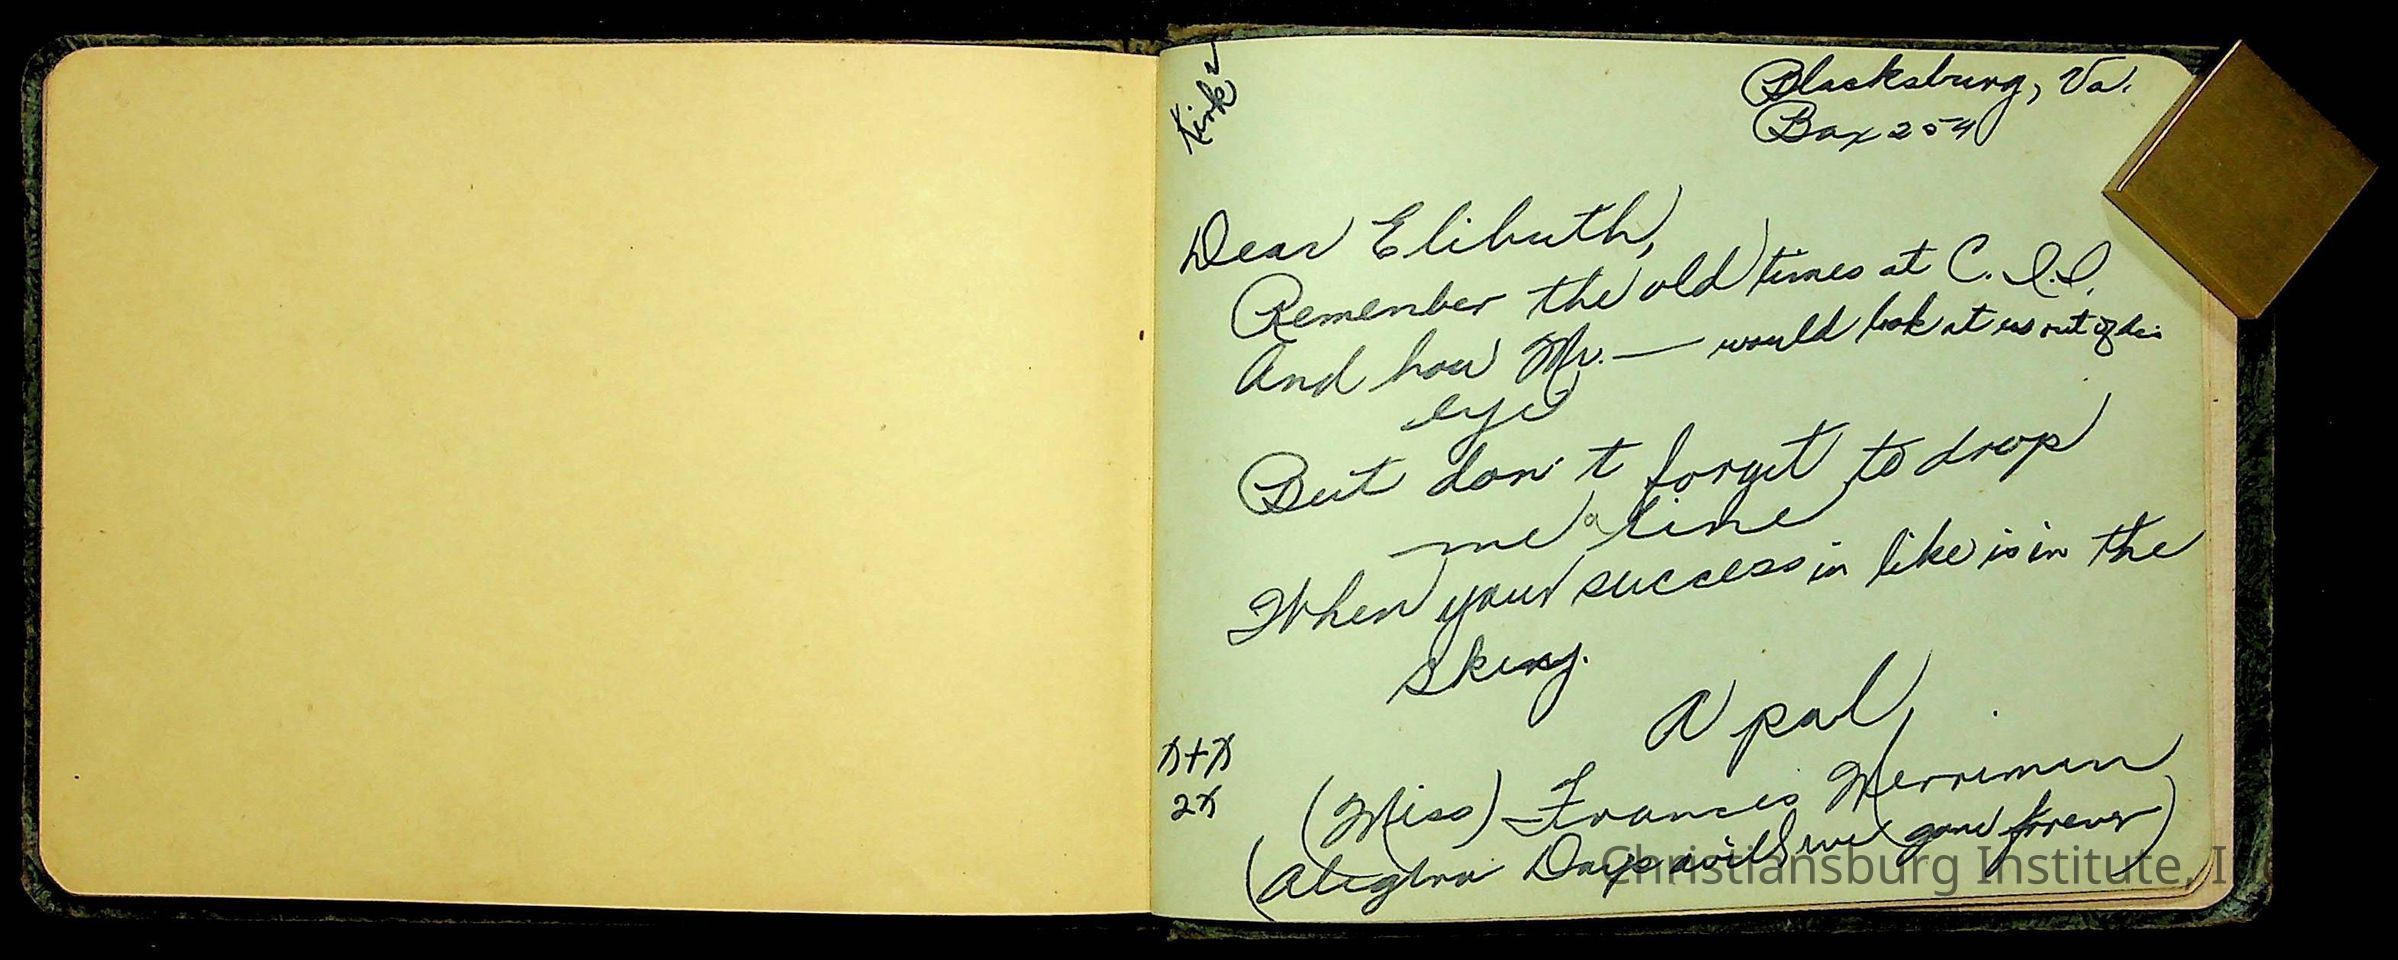 Kirk
Blacksburg, Va.
Box 254
Dear Elibuth,
Remember the old times at C. I. I.
And how Mr. — would look at us out of his
eye
But don't forget to drop
me a line
When your success in like is in the
Sking.
A pal
x+x
2x
(Miss) Frances Merriman
(Days will gone forever)
Christiansburg Institute, Inc